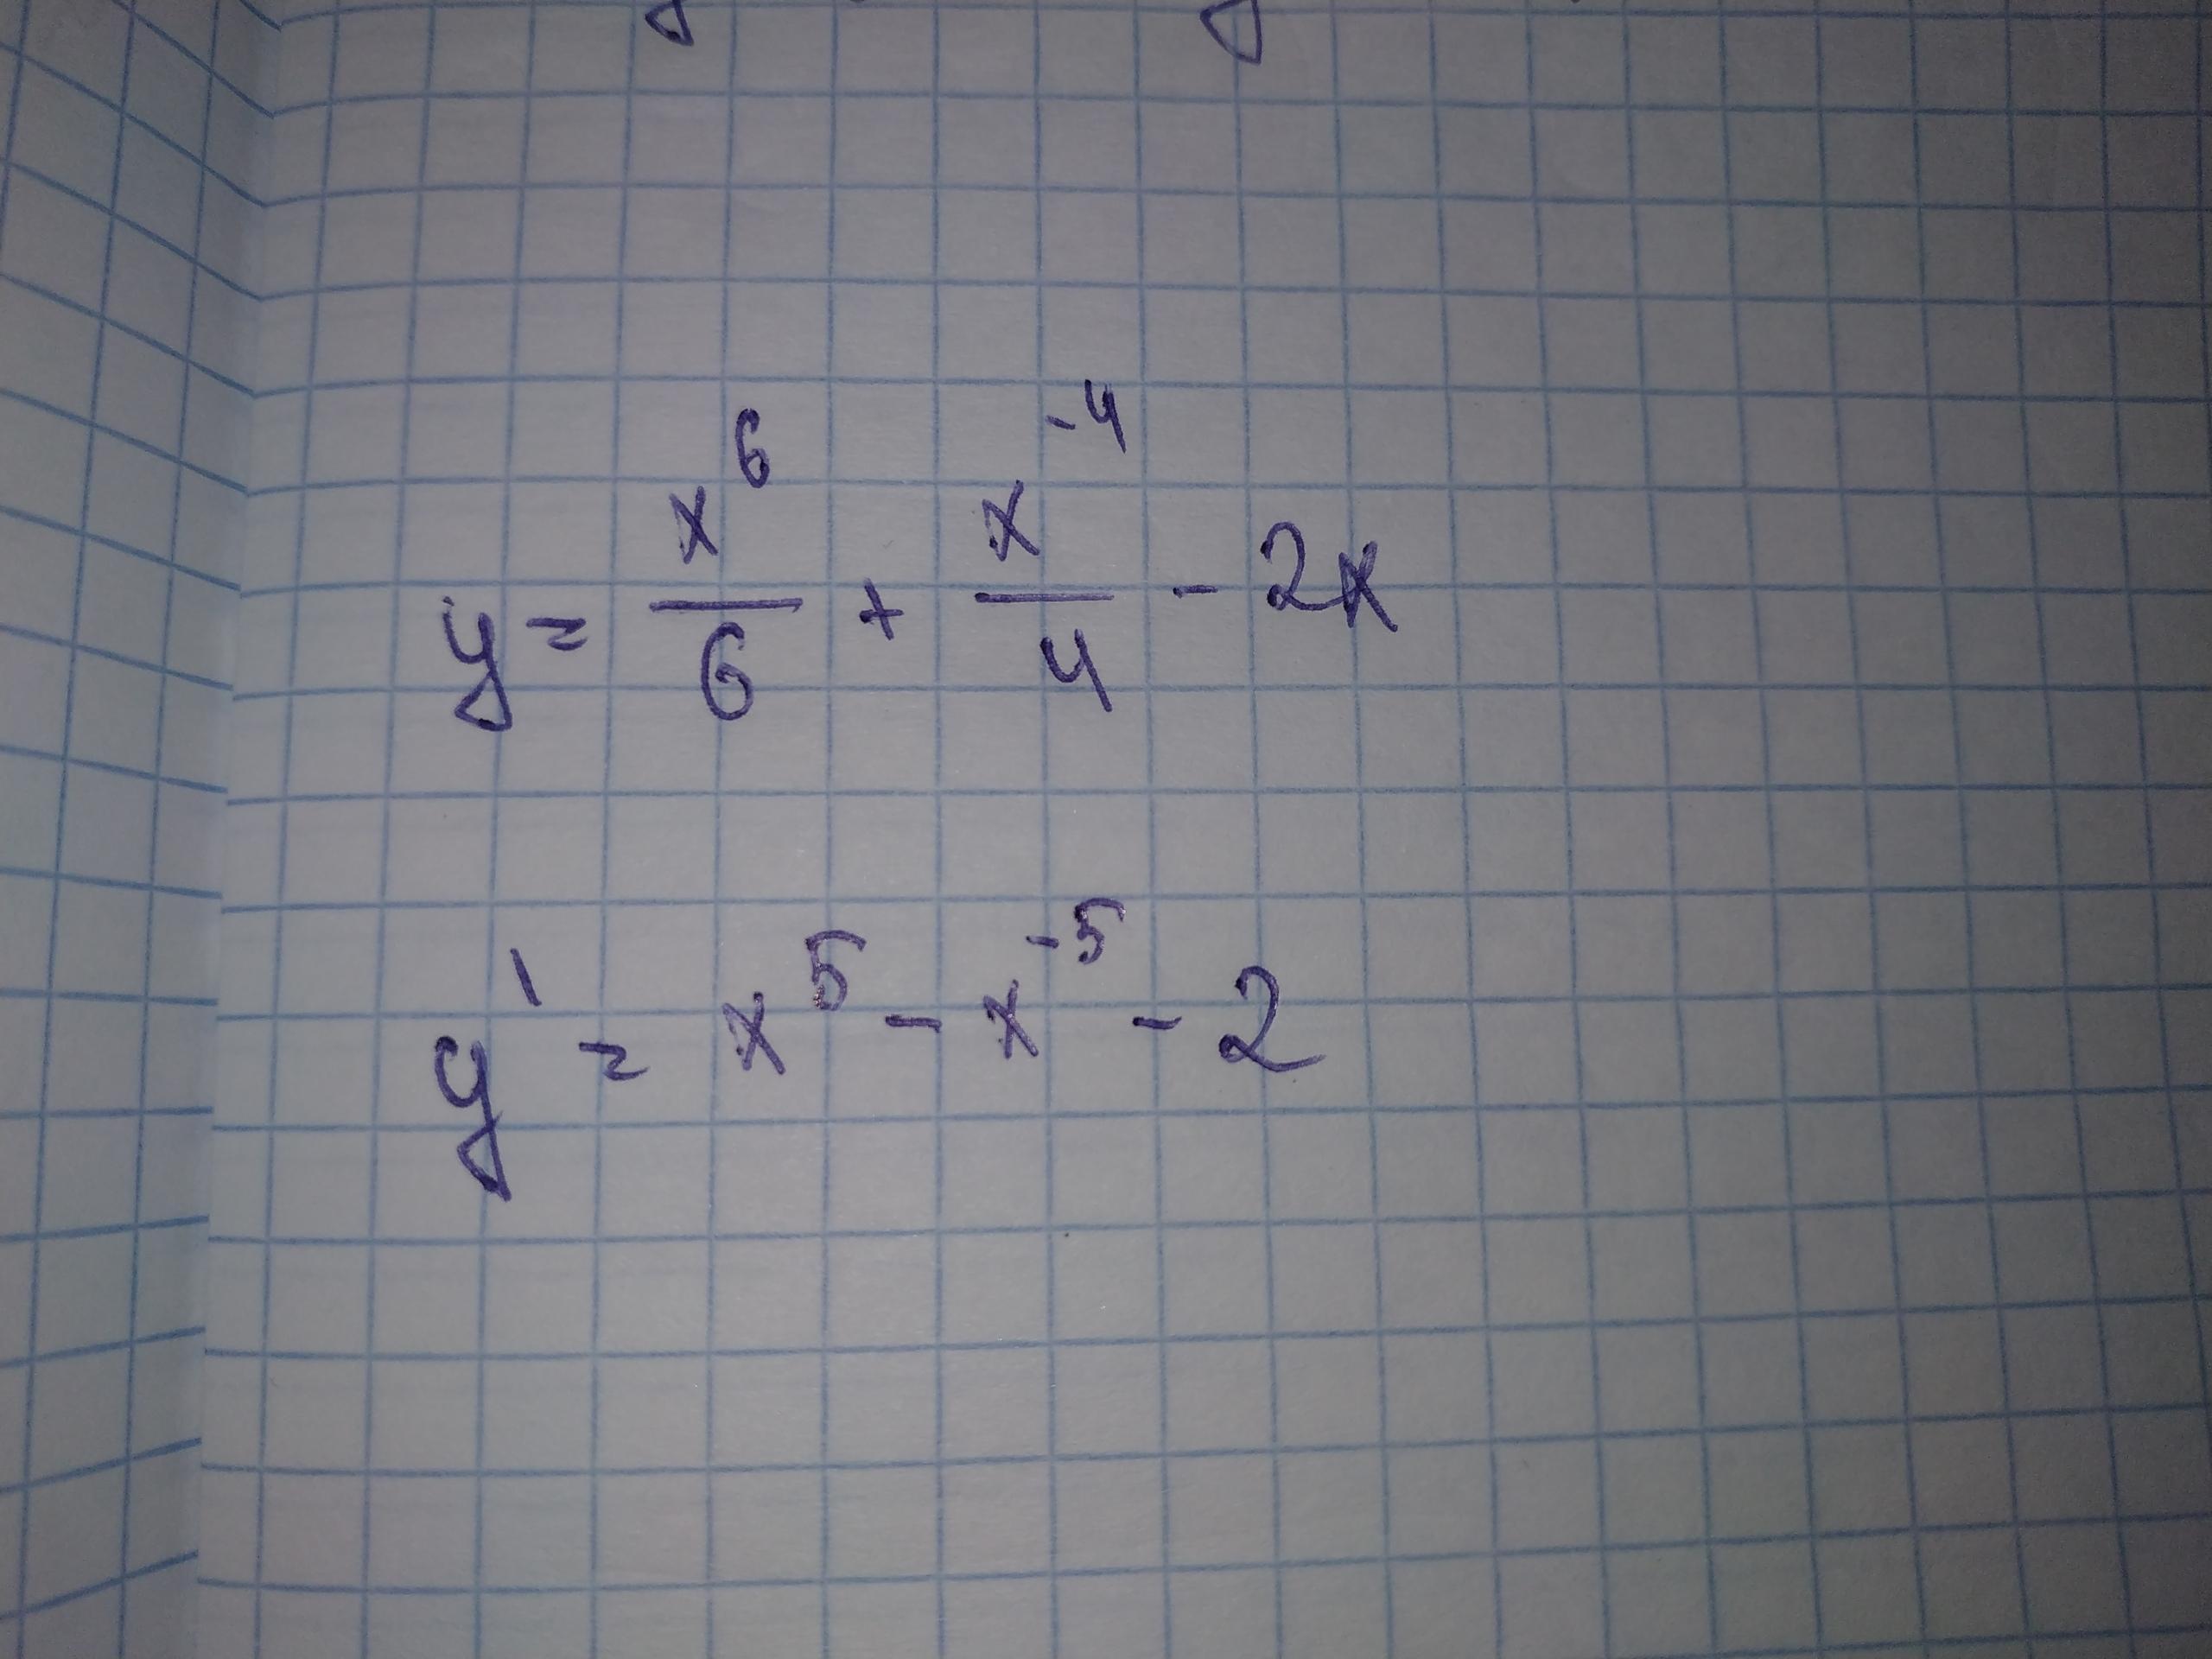 y = x^6/6 + x^-4/4 - 2x
y' = x^5 - x^-5 - 2